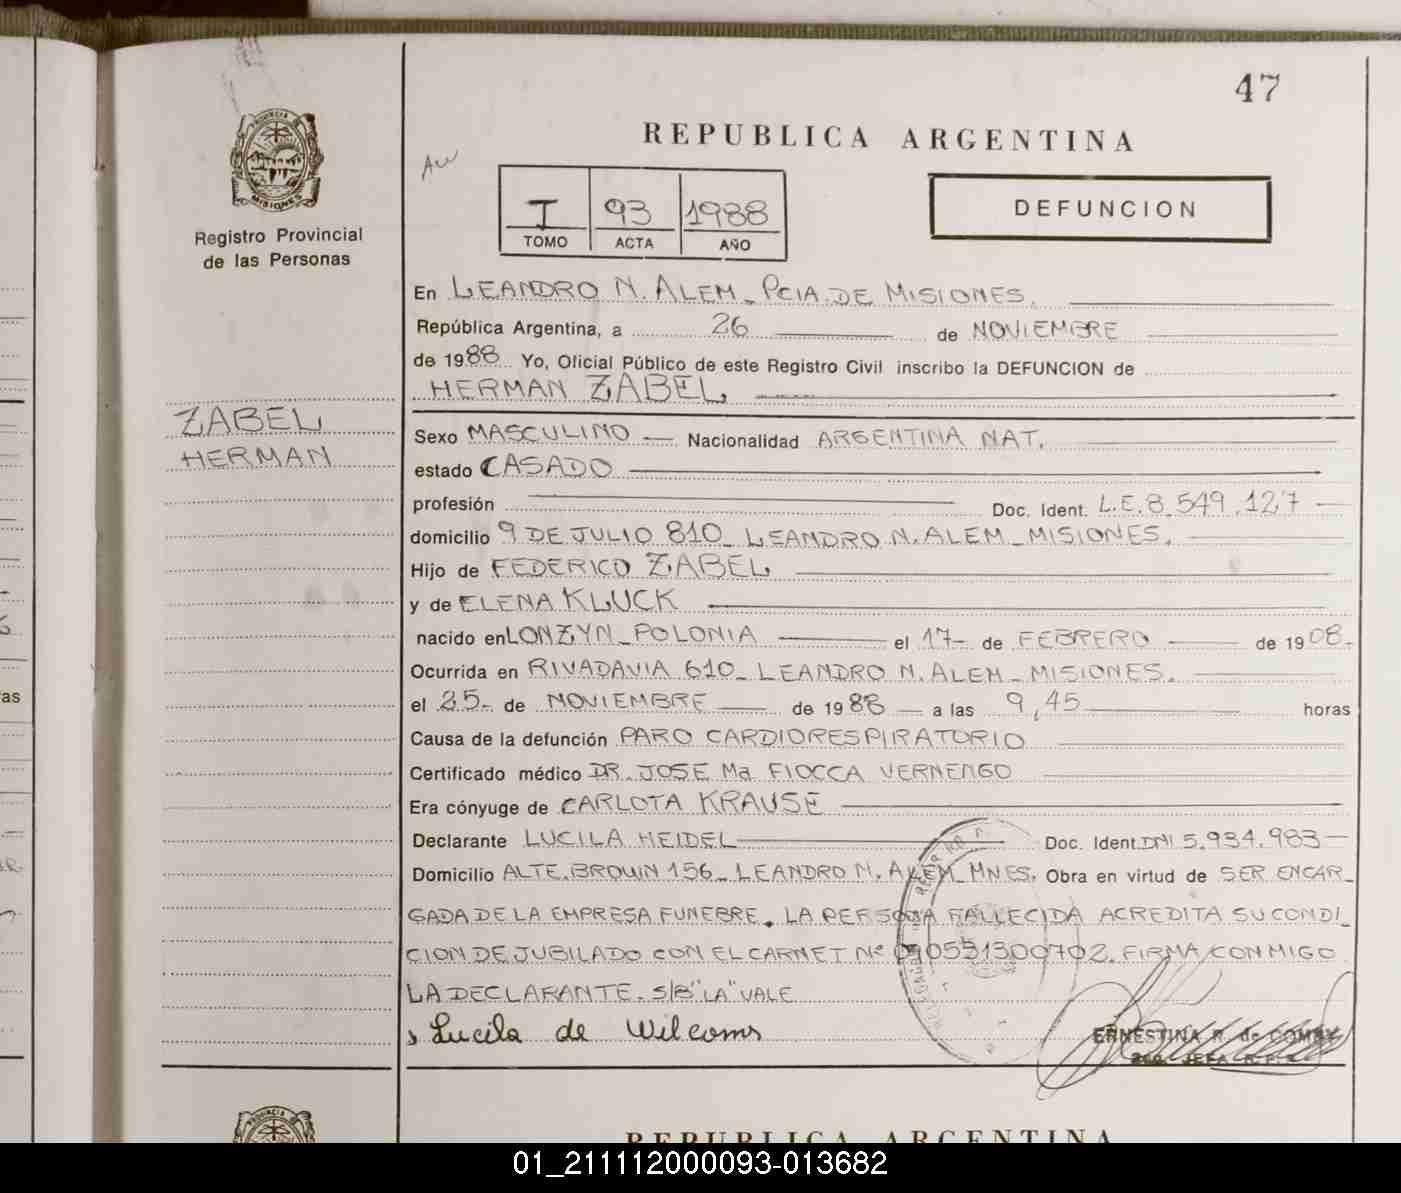 47
REPUBLICA ARGENTINA
PROVINCIA DE
MISIONES
Registro Provincial
de las Personas
I 93 1988
TOMO ACTA AÑO
DEFUNCION
En LEANDRO N. ALEM_ PCIA. DE MISIONES.
República Argentina, a 26 de NOVIEMBRE
de 1988 Yo, Oficial Público de este Registro Civil inscribo la DEFUNCION de
HERMAN ZABEL
ZABEL
HERMAN
Sexo MASCULINO — Nacionalidad ARGENTINA NAT.
estado CASADO
profesión Doc. Ident. L.E.8.549.127
domicilio 9 DE JULIO 810_ LEANDRO N. ALEM_ MISIONES.
Hijo de FEDERICO ZABEL
y de ELENA KLUCK
nacido en LONZYN_ POLONIA el 17- de FEBRERO de 1908.
Ocurrida en RIVADAVIA 610_ LEANDRO N. ALEM_ MISIONES.
el 25- de NOVIEMBRE de 1988 a las 9,45 horas
Causa de la defunción PARO CARDIORESPIRATORIO
Certificado médico DR. JOSE Ma FIOCCA VERNENGO
Era cónyuge de CARLOTA KRAUSE
Declarante LUCILA HEIDEL Doc. Ident. DNI 5.934.983
Domicilio ALTE. BROWN 156_ LEANDRO N. ALEM_ MNES. Obra en virtud de SER ENCAR_
GADA DE LA EMPRESA FUNEBRE. LA PERSONA FALLECIDA ACREDITA SU CONDI_
CION DE JUBILADO CON EL CARNET Nº FIRMA CONMIGO
LA DECLARANTE. S/B "LA" VALE
Lucila de
ERNESTINA R. de
JEFA
REPUBLICA ARGENTINA
01_211112000093-013682